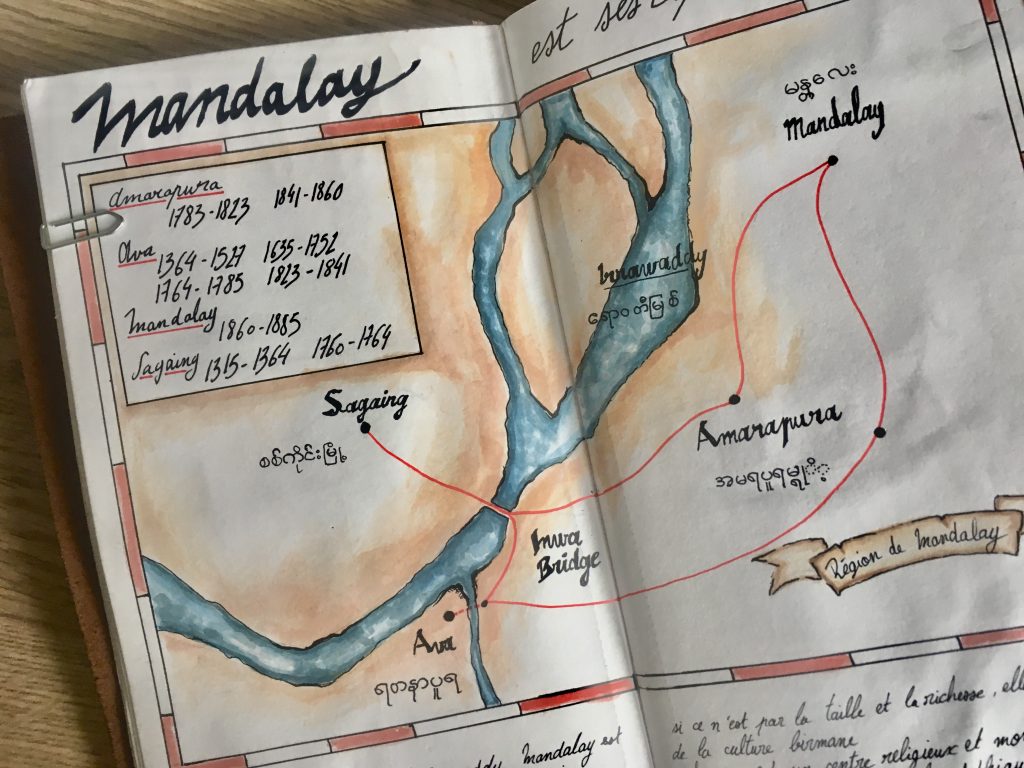 Mandalay
est ses
Amarapura
1783-1823 1841-1860
Ava 1364-1527 1635-1752
1764-1785 1823-1841
Mandalay 1860-1885
Sagaing 1315-1364 1760-1764
မန္တလေး
Mandalay
Irrawaddy
ဧရာဝတီမြစ်
Sagaing
စစ်ကိုင်းမြို့
Amarapura
Inwa
Bridge
Région de Mandalay
Ava
ရတနာပူရ
Mandalay est
si ce n'est par la taille et la richesse, elle
de la culture birmane
centre religieux et